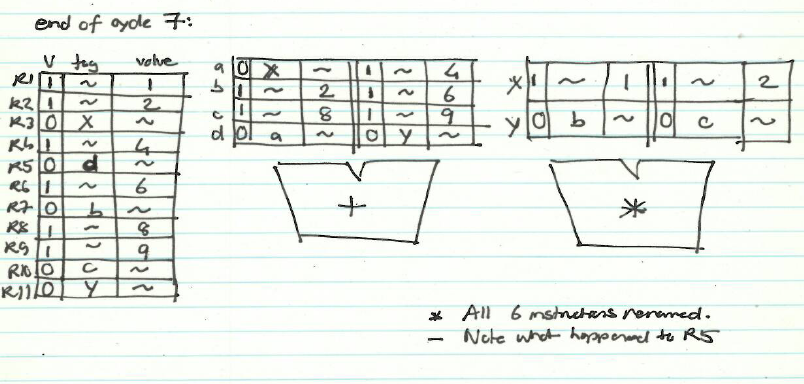 end of cycle 7:
V tag value
R1 1 ~ 1
R2 1 ~ 2
R3 0 X ~
R4 1 ~ 4
R5 0 d ~
R6 1 ~ 6
R7 0 b ~
R8 1 ~ 8
R9 1 ~ 9
R10 0 c ~
R11 0 Y ~
a 0 X ~ 1 ~ 4
b 1 ~ 2 1 ~ 6
c 1 ~ 8 1 ~ 9
d 0 a ~ 0 Y ~
+
X 1 ~ 1 1 ~ 2
Y 0 b ~ 0 c ~
*
* All 6 instructions renamed.
– Note what happened to R5